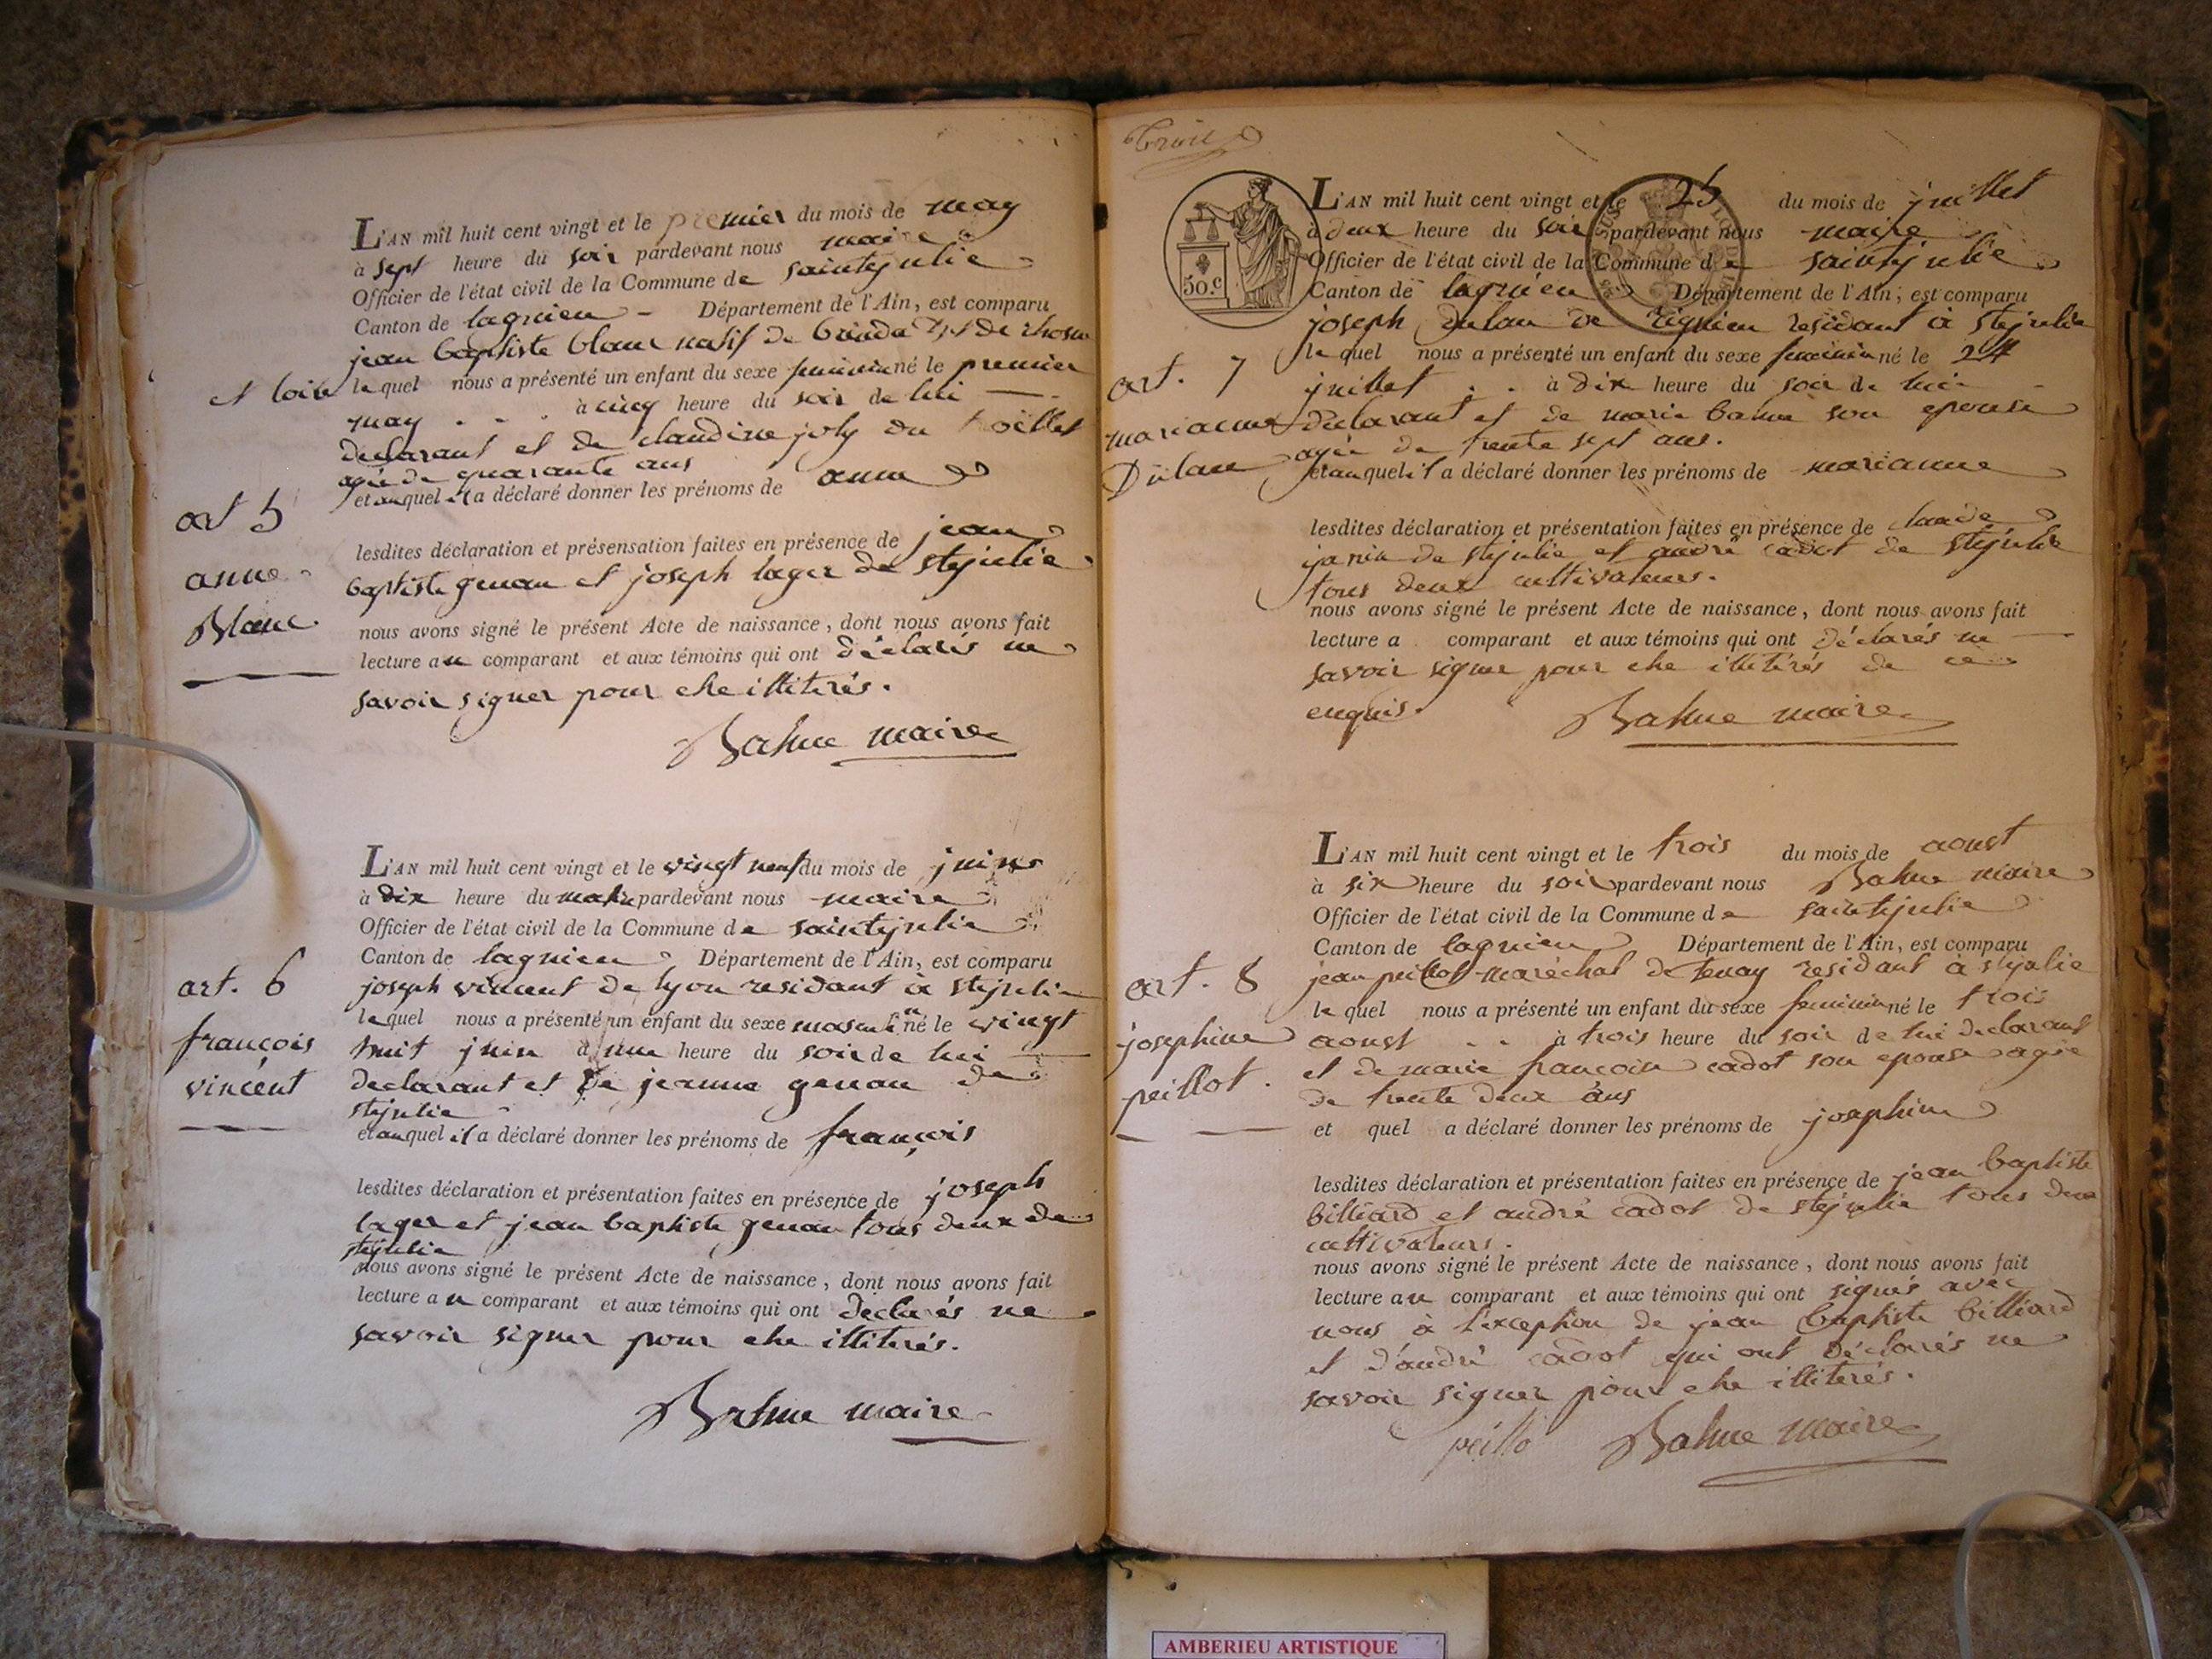 L'AN mil huit cent vingt et le premier du mois de may
à sept heure du soir pardevant nous maire
Officier de l'état civil de la Commune de saintejulie
Canton de lagnieu Département de l'Ain, est comparu
jean baptiste blanc natif de de rhosne
et loire le quel nous a présenté un enfant du sexe feminin né le premier
may . . . à cinq heure du soir de lui
declarant et de claudine joly du
agée de quarante ans
et auquel il a déclaré donner les prénoms de anne
art 5
anne
Blanc.
lesdites déclaration et présensation faites en présence de jean
baptiste genau et joseph lager de stejulie
nous avons signé le présent Acte de naissance, dont nous avons fait
lecture au comparant et aux témoins qui ont déclarés ne
savoir signer pour etre illiterés.
Bahue maire
L'AN mil huit cent vingt et le vingt neuf du mois de juin
à dix heure du matin pardevant nous maire
Officier de l'état civil de la Commune de saintejulie
Canton de lagnieu Département de l'Ain, est comparu
art. 6
françois
vincent
joseph vincent de lyon residant à stejulie
le quel nous a présenté un enfant du sexe masculin né le vingt
huit juin à une heure du soir de lui
declarant et de jeanne genau de
stejulie
et auquel il a déclaré donner les prénoms de françois
lesdites déclaration et présentation faites en présence de joseph
lager et jean baptiste genau tous deux de
stejulie
nous avons signé le présent Acte de naissance, dont nous avons fait
lecture au comparant et aux témoins qui ont declarés ne
savoir signer pour etre illiterés.
Bahue maire
50.c
L'AN mil huit cent vingt et le 25 du mois de juillet
à deux heure du soir pardevant nous maire
Officier de l'état civil de la Commune de saintejulie
Canton de lagnieu Département de l'Ain, est comparu
joseph dulau de rignieu residant à stejulie
le quel nous a présenté un enfant du sexe feminin né le 24
art. 7
marianne
Dulau
juillet . . à dix heure du soir de lui
declarant et de marie bahue son epouse
agée de trente sept ans.
et auquel il a déclaré donner les prénoms de marianne
lesdites déclaration et présentation faites en présence de claude
janin de stejulie et andré cadot de stejulie
tous deux cultivateurs.
nous avons signé le présent Acte de naissance, dont nous avons fait
lecture a comparant et aux témoins qui ont déclarés ne
savoir signer pour etre illitérés de ce
enquis.
Bahue maire
L'AN mil huit cent vingt et le trois du mois de aoust
à six heure du soir pardevant nous Bahue maire
Officier de l'état civil de la Commune de saintejulie
Canton de lagnieu Département de l'Ain, est comparu
art. 8
josephine
peillot.
jean peillot maréchal de tenay residant à stejulie
le quel nous a présenté un enfant du sexe feminin né le trois
aoust . . à trois heure du soir de lui declarant
et de marie francoise cadot son epouse agée
de trente deux ans
et quel a déclaré donner les prénoms de josephine
lesdites déclaration et présentation faites en présence de jean baptiste
billiard et andré cadot de stejulie tous deux
cultivateurs.
nous avons signé le présent Acte de naissance, dont nous avons fait
lecture au comparant et aux témoins qui ont signés avec
nous à l'exception de jean baptiste billiard
et d'andré cadot qui ont déclarés ne
savoir signer pour etre illiterés.
peillo Bahue maire
AMBERIEU ARTISTIQUE